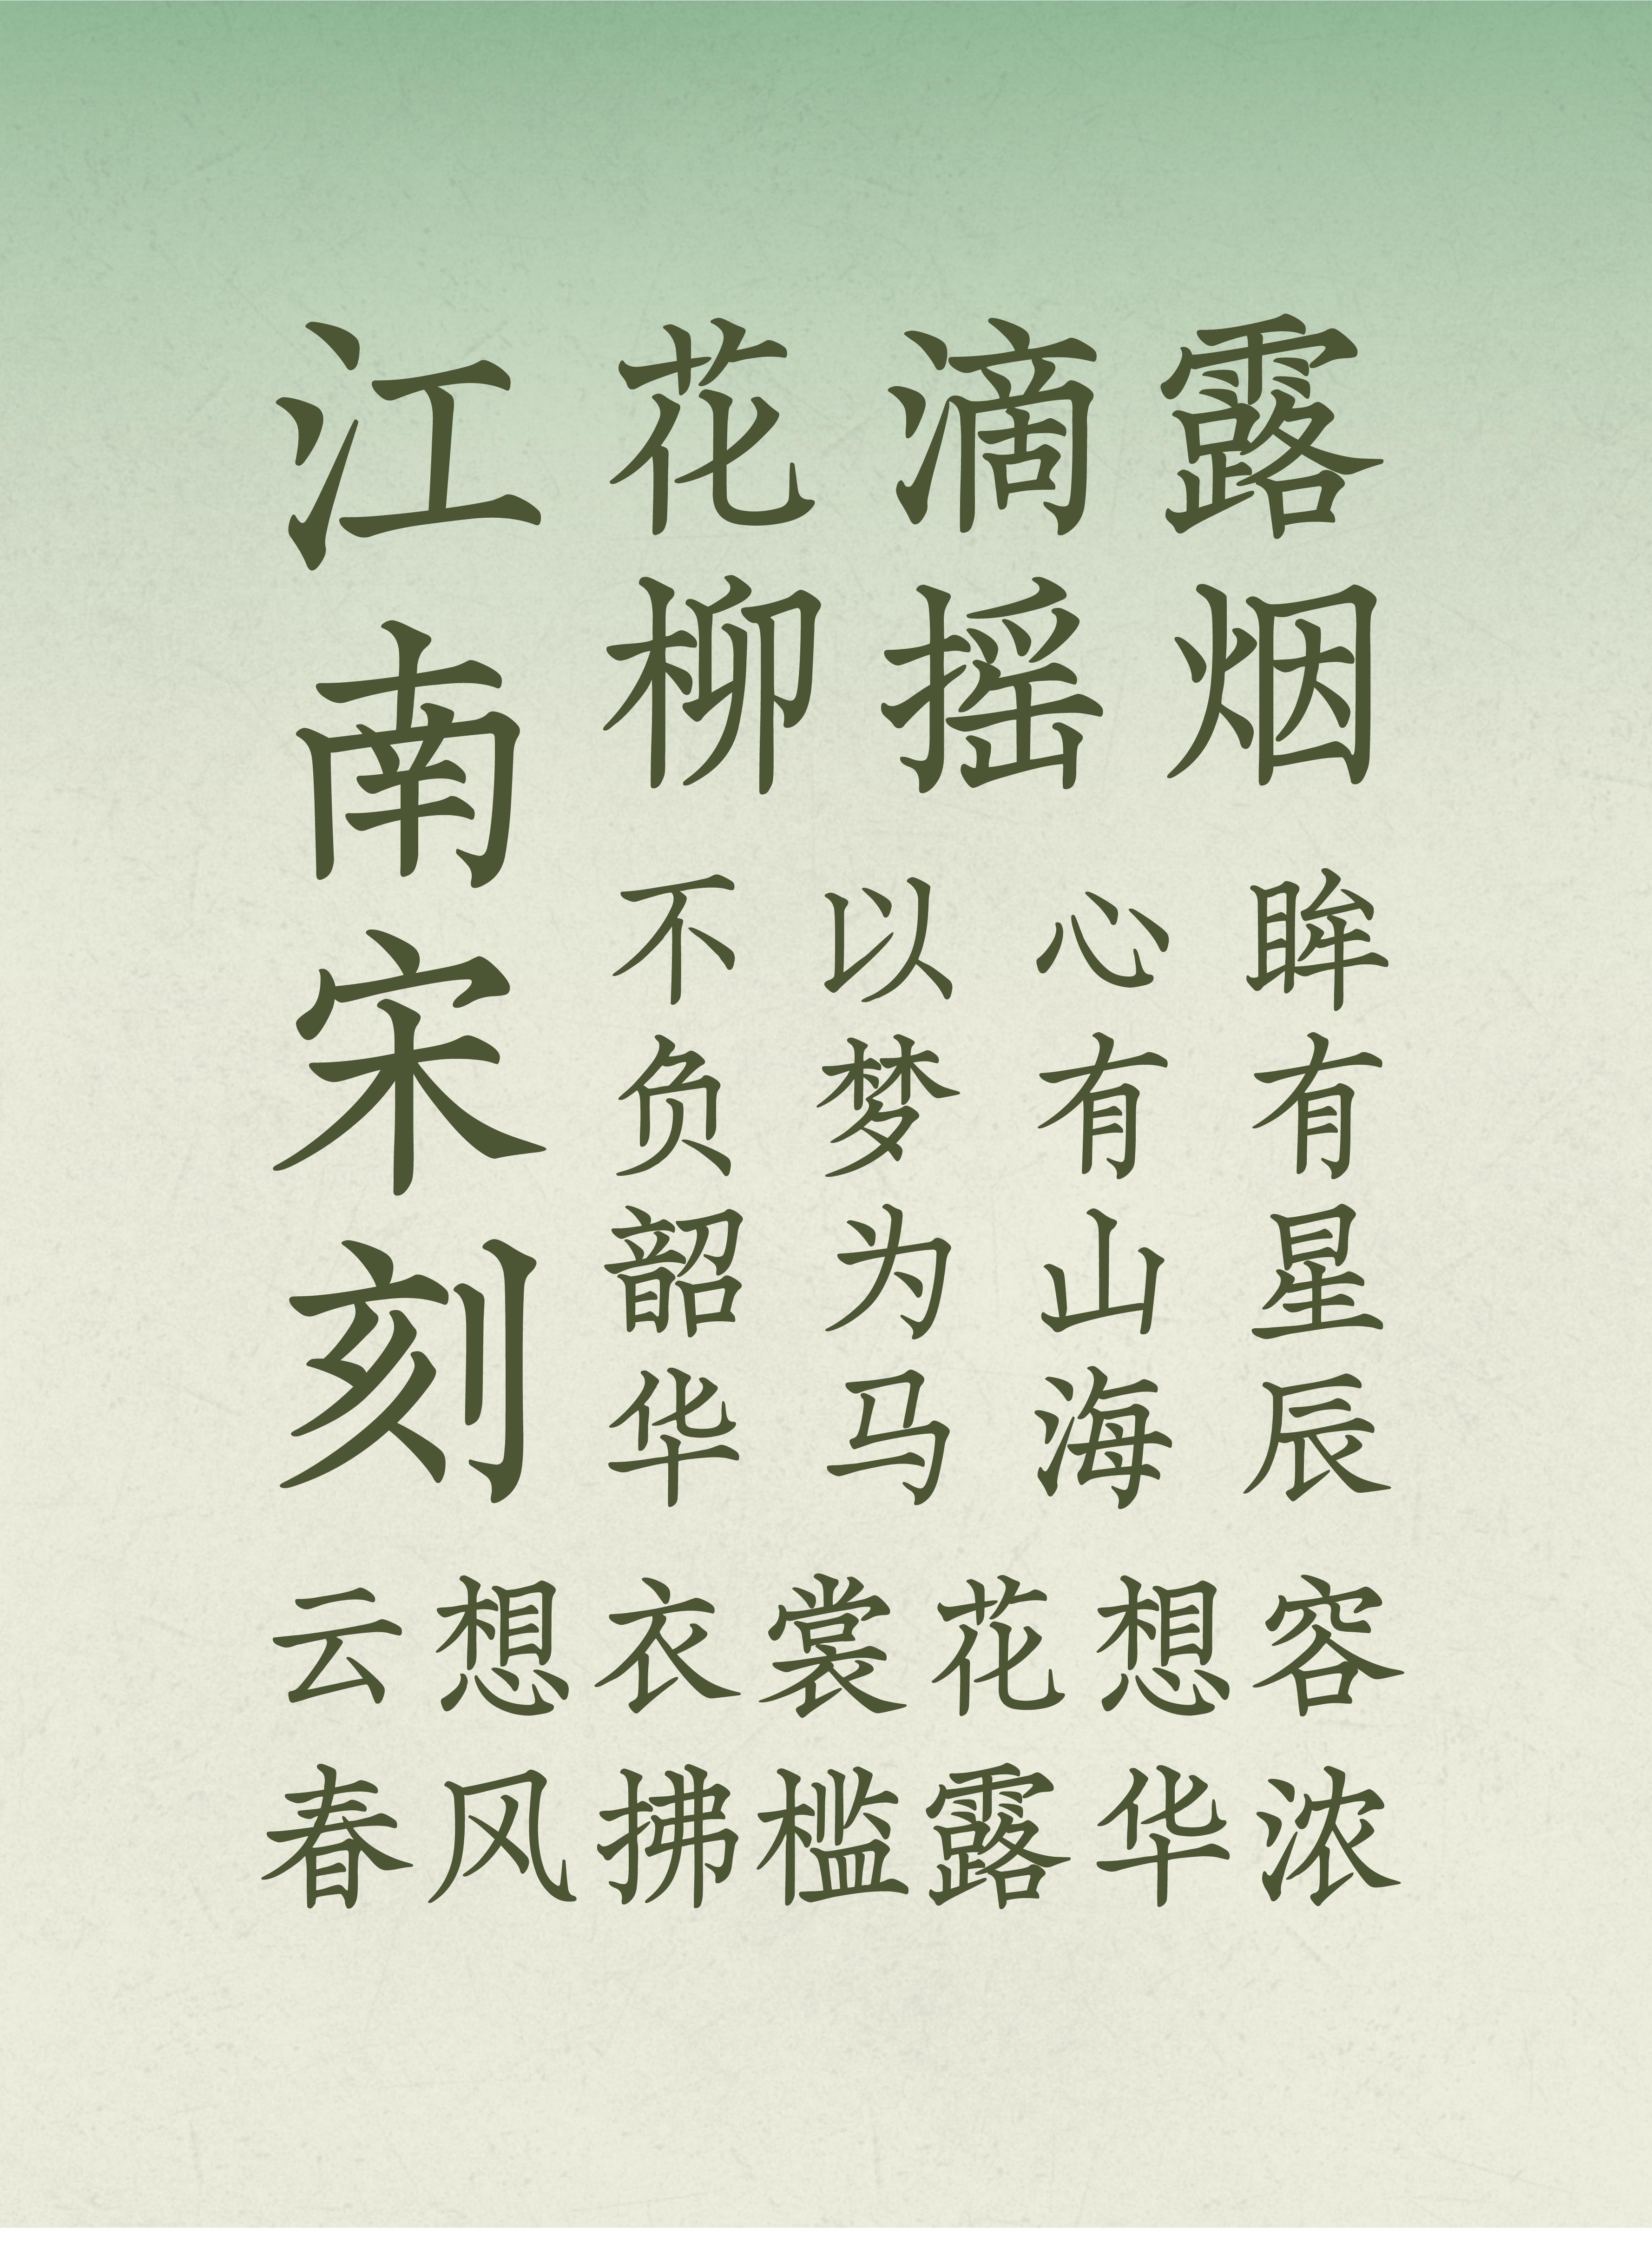 江南宋刻
花滴露
柳摇烟
眸有星辰
心有山海
以梦为马
不负韶华
云想衣裳花想容
春风拂槛露华浓